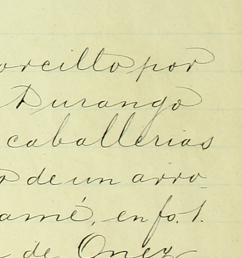 orcillo por
Durango
caballerias
o de un arro-
amé, en fo. 1.
de Onez